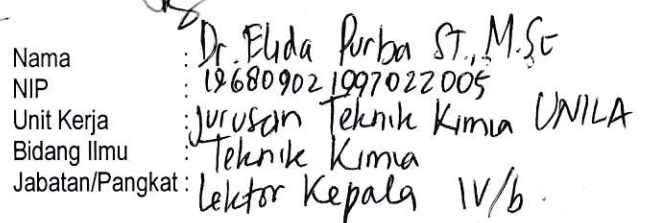 Nama : Dr. Elida Purba ST., M.Sc
NIP : 196809021997022005
Unit Kerja : Jurusan Teknik Kimia UNILA
Bidang Ilmu : Teknik Kimia
Jabatan/Pangkat : Lektor Kepala IV/b.